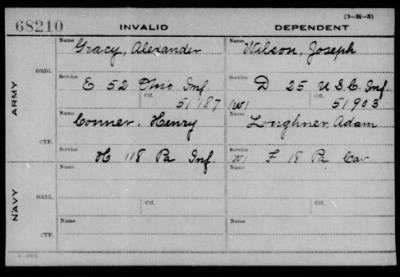 68210 INVALID DEPENDENT (3-H-3)
ARMY
ORIG.
Name Gracy, Alexander Name Wilson, Joseph
Service E 52 Ohio Inf. Service D 25 U.S.C. Inf.
Ctf. 51187 (W) Ctf. 51903
CTF.
Name Conner, Henry Name Loughner, Adam
Service H 118 Pa Inf. Service W) F 18 Pa Cav
NAVY
ORIG.
Name Name
Service Ctf. Service Ctf.
CTF.
Name Name
Service Service